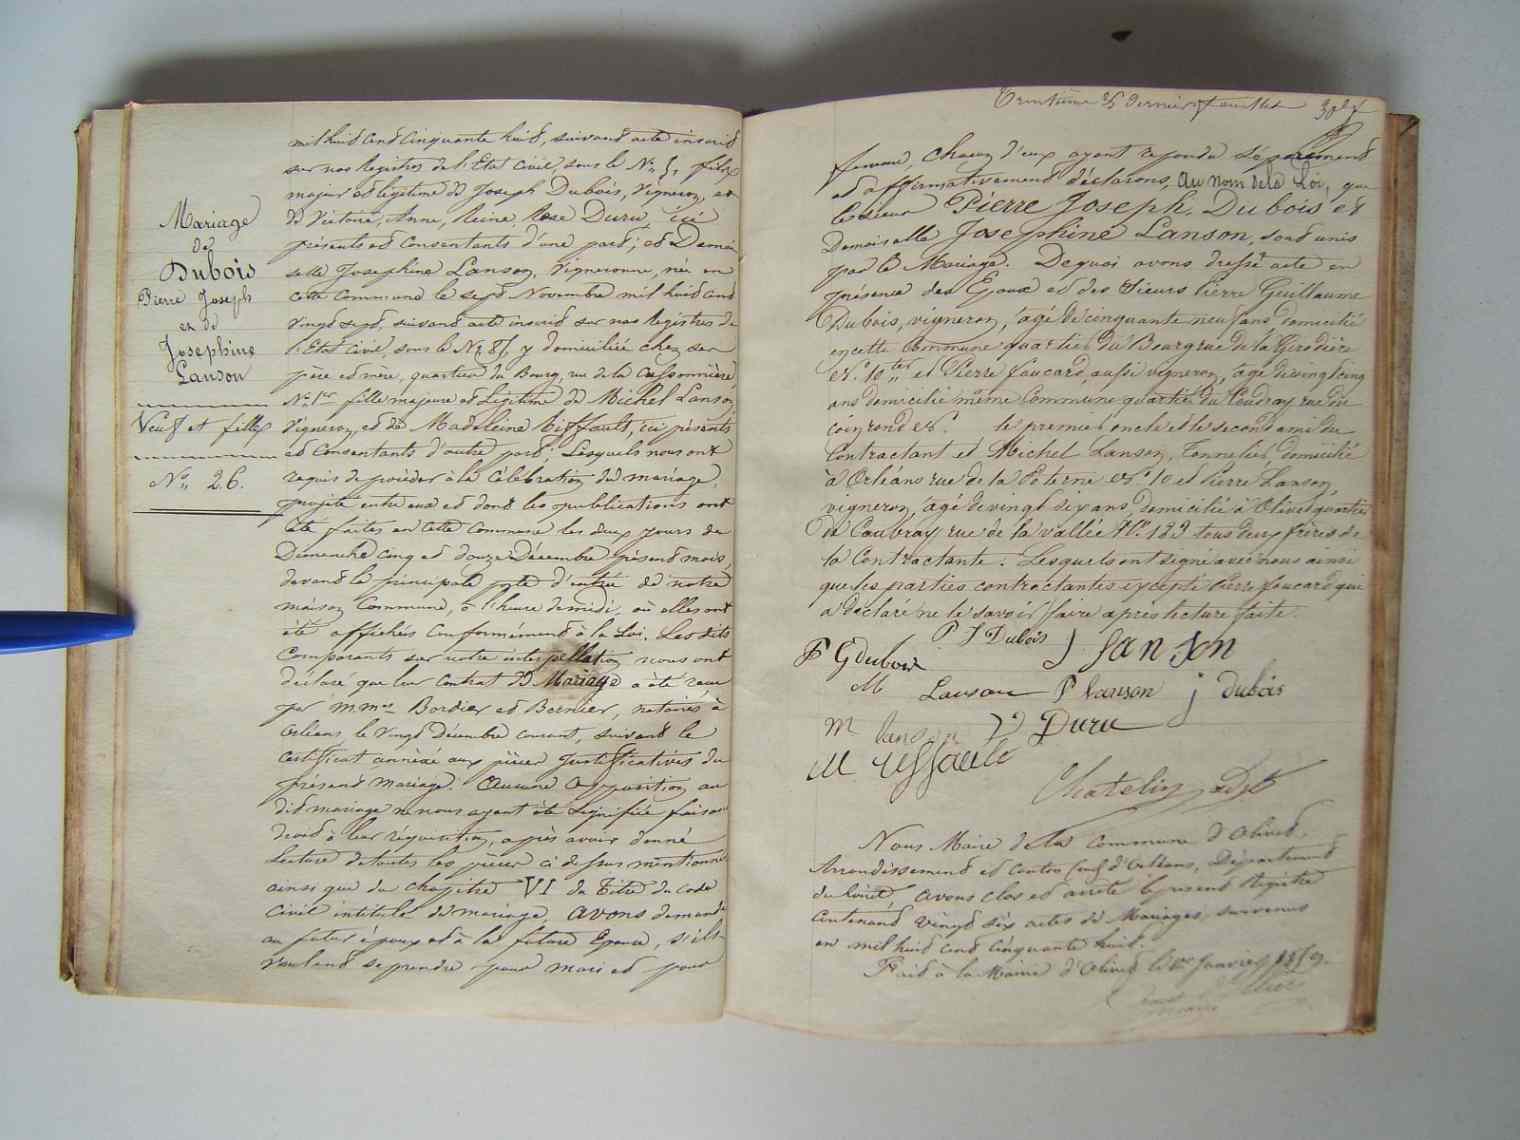 Mariage
de
Dubois
Pierre Joseph
et de
Josephine
Lanson
Veuf et fille
N° 26.
mil huit cent cinquante huit, suivant acte inscrit
sur nos Registres de l'Etat civil, sous le N° fils
majeur et légitime de Joseph Dubois, Vigneron, et
de Victoire, Anne, Reine, Rose Duru, ici
présents et Consentants d'une part; et Demoi
selle Josephine Lanson, Vigneronne, née en
cette Commune le sept Novembre mil huit cent
vingt sept, suivant acte inscrit sur nos Registres de
l'Etat Civil, sous le N° 85, y domiciliée chez ses
père et mère, quartier du Bourg, rue de la
N° 1er fille majeure et légitime de Michel Lanson
Vigneron, et de Madeleine Tiffault, ici présents
et Consentants d'autre part; Lesquels nous ont
requis de procéder à la Célébration du mariage
projeté entre eux et dont les publications ont
été faites en Cette Commune les deux jours de
Dimanche cinq et douze Décembre présent mois,
devant la principale porte d'entrée de notre
maison Commune, à l'heure de midi, où elles ont
été affichées Conformément à la Loi. Les dits
Comparants sur notre interpellation nous ont
déclaré que leur Contrat de Mariage a été reçu
par M.Mes Bordier et Bernier, notaires à
Orléans le vingt Décembre courant, suivant le
certificat annéxé aux pièces Justificatives du
présent mariage. Aucune Opposition au
dit mariage ne nous ayant été signifiée faisant
droit à leur réquisition, après avoir donné
Lecture de toutes les pièces ci dessus mentionnées
ainsi que du chapitre VI du Titre du Code
Civil intitulé du mariage, avons demandé
au futur époux et à la future Epouse, s'ils
veulent se prendre pour mari et pour
Trentième et dernier feuillet
femme, Chacun d'eux ayant répondu séparément
et affirmativement déclarons, au nom de la Loi, que
le sieur Pierre Joseph Dubois et
Demoiselle Josephine Lanson, sont unis
par le Mariage. De quoi avons dressé acte en
présence des Epoux et des Sieurs Pierre Guillaume
Dubois, vigneron, âgé de cinquante neuf ans domicilié
en cette Commune quartier du Bourg rue de la Girodière
N° 10 ter et Pierre foucard, aussi vigneron, âgé de vingt cinq
ans domicilié même Commune quartier du Coudray rue du
coin rond N°. le premier oncle et le second ami du
Contractant et Michel Lanson, Tonnelier, domicilié
à Orléans rue de la Poterne N° 10 et Pierre Lanson
vigneron, âgé de vingt six ans, domicilié à Olivet quartier
de Caubray rue de la vallée N° 129 tous deux frères de
la Contractante : Lesquels ont signé avec nous ainsi
que les parties contractantes excepté Pierre foucard qui
a déclaré ne le savoir faire après lecture faite.
P J Dubois J Lanson
P G dubois
M Lanson P Lanson j dubois
M Lanson V Duru
M tiffault
Chatelin adjt
Nous Maire de la Commune d'Olivet
Arrondissement et Canton Sud d'Orléans, Département
du Loiret, avons clos et arrêté le présent Registre
Contenant vingt six actes de Mariages survenus
en mil huit cent cinquante huit.
Fait à la Mairie d'Olivet le 1er Janvier 1859.